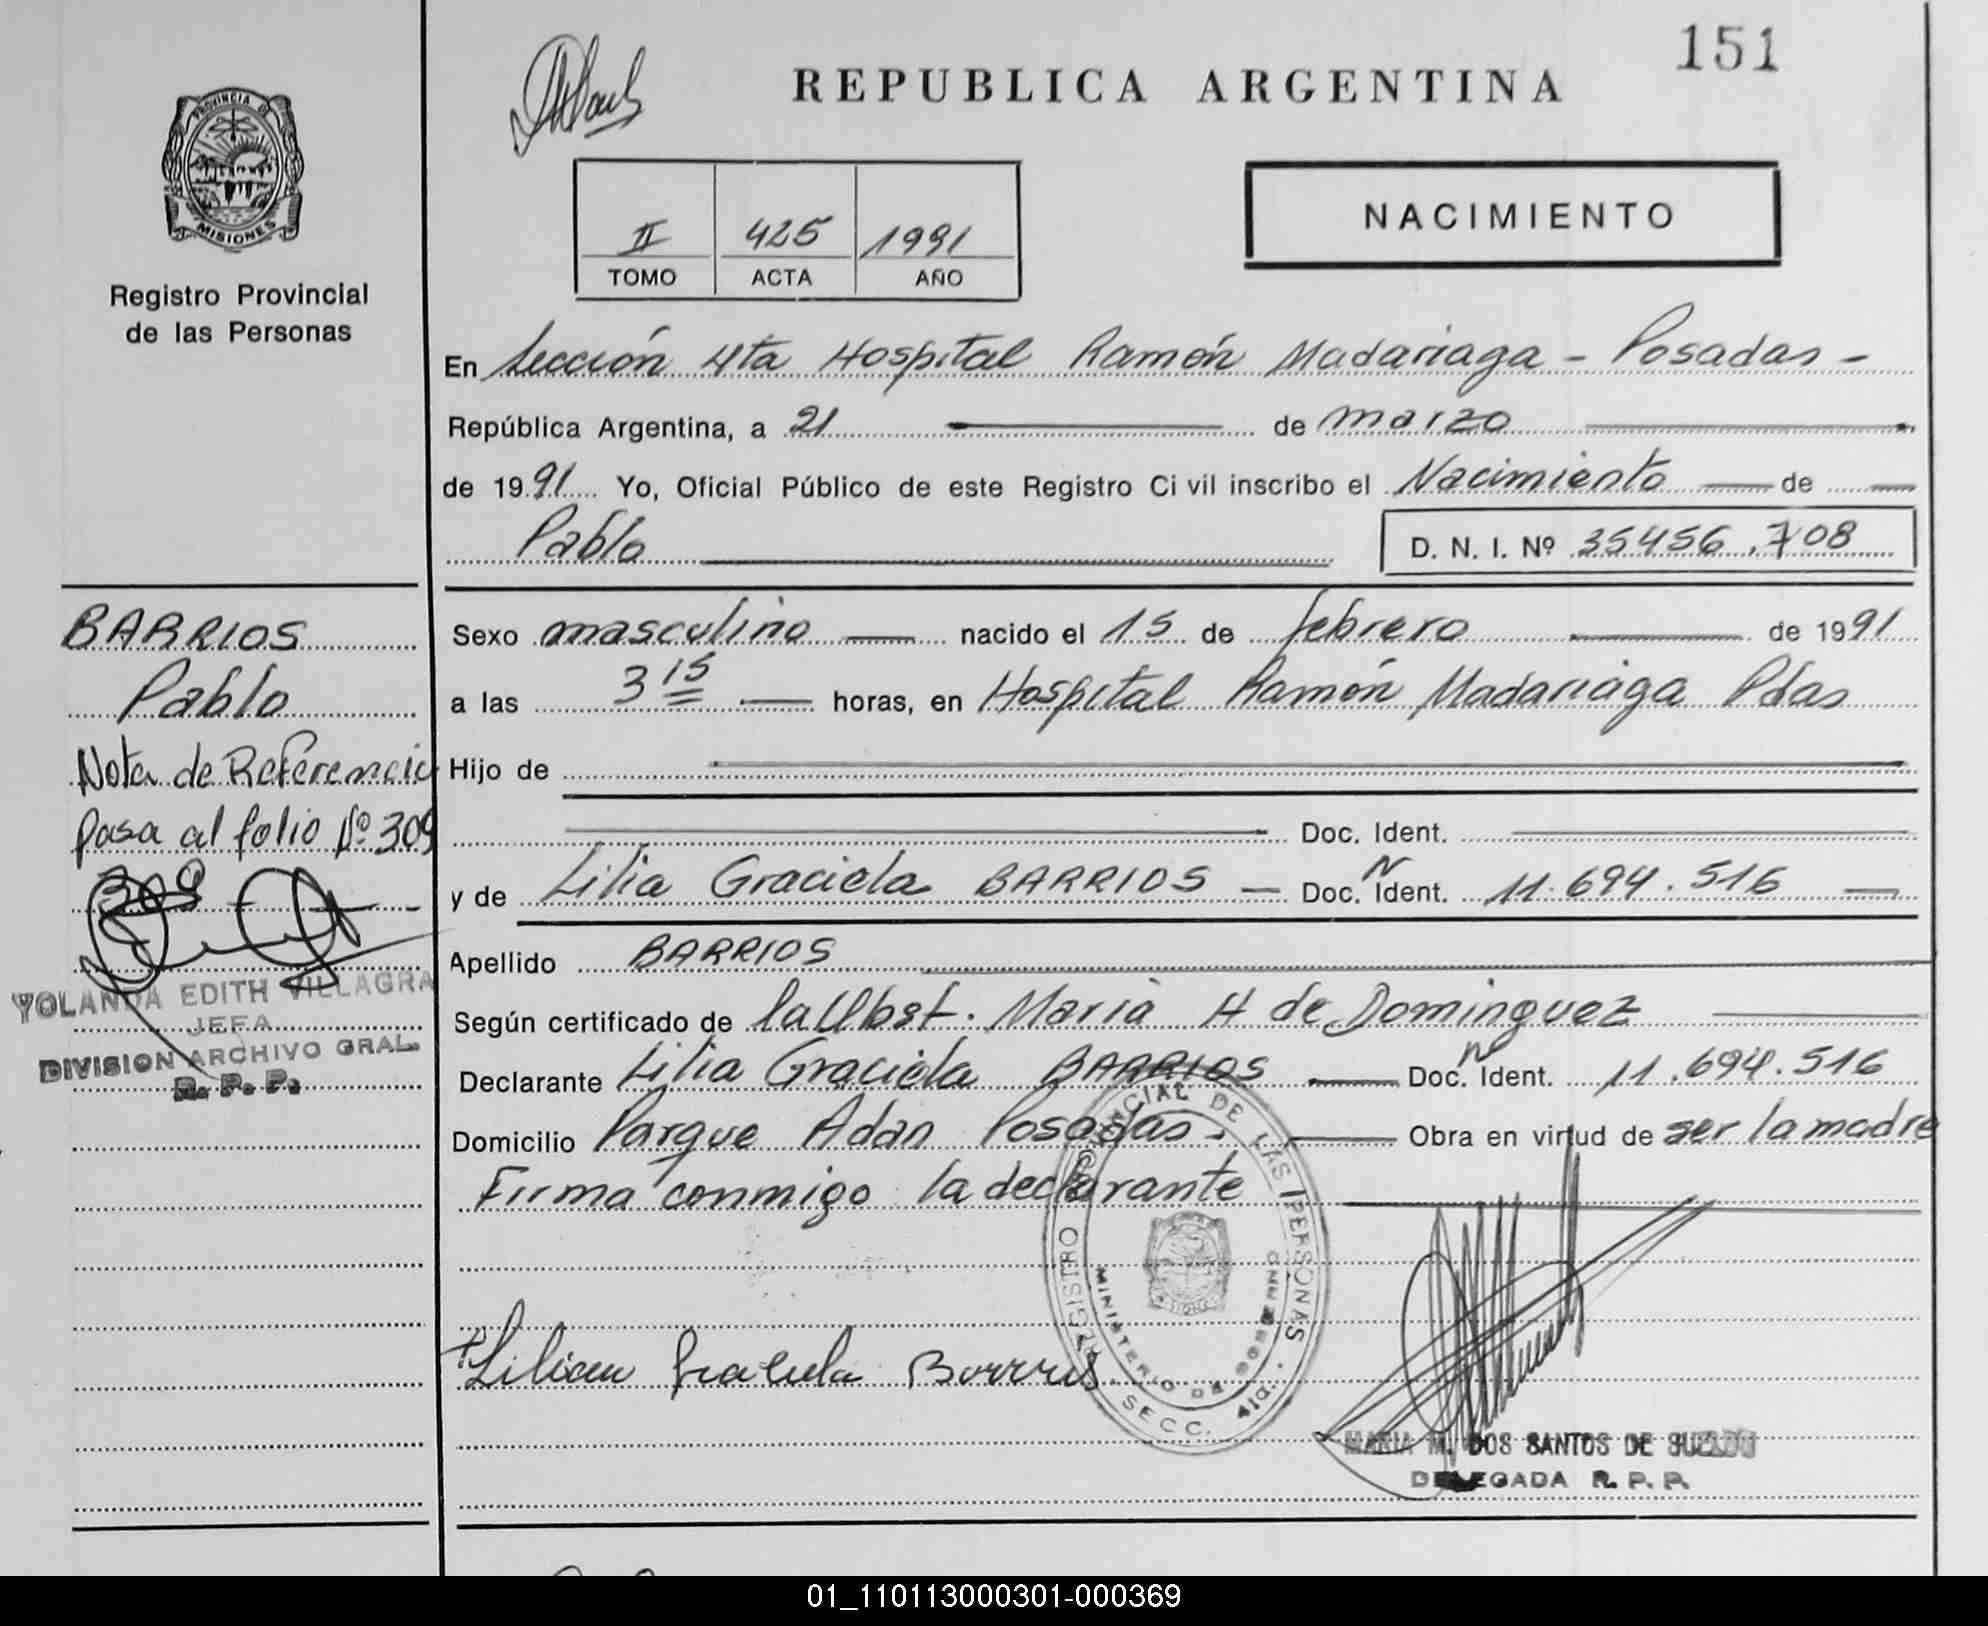 151
REPUBLICA ARGENTINA
PROVINCIA DE
MISIONES
Registro Provincial
de las Personas
II 425 1991
TOMO ACTA AÑO
NACIMIENTO
En Sección 4ta Hospital Ramón Madariaga - Posadas -
República Argentina, a 21 de marzo
de 1991 Yo, Oficial Público de este Registro Civil inscribo el Nacimiento de
Pablo D. N. I. Nº 35456.708
BARRIOS
Pablo
Nota de Referencia
Pasa al folio Nº 309
309
YOLANDA EDITH VILLAGRA
JEFA
DIVISION ARCHIVO GRAL.
R. P. P.
Sexo masculino nacido el 15 de febrero de 1991
a las 3 15 horas, en Hospital Ramón Madariaga Pdas
Hijo de
Doc. Ident.
y de Lilia Graciela BARRIOS - Doc. N Ident. 11.694.516
Apellido BARRIOS
Según certificado de la Obst. Maria H de Dominguez
Declarante Lilia Graciela BARRIOS Doc. N Ident. 11.694.516
Domicilio Parque Adan Posadas. Obra en virtud de ser la madre
Firma conmigo la declarante
REGISTRO PROVINCIAL DE LAS PERSONAS
MINISTERIO DE GOBIERNO
SECC. 4ta.
Lilian Graciela Barrios
MARIA M. DOS SANTOS DE
DELEGADA R. P. P.
01_110113000301-000369